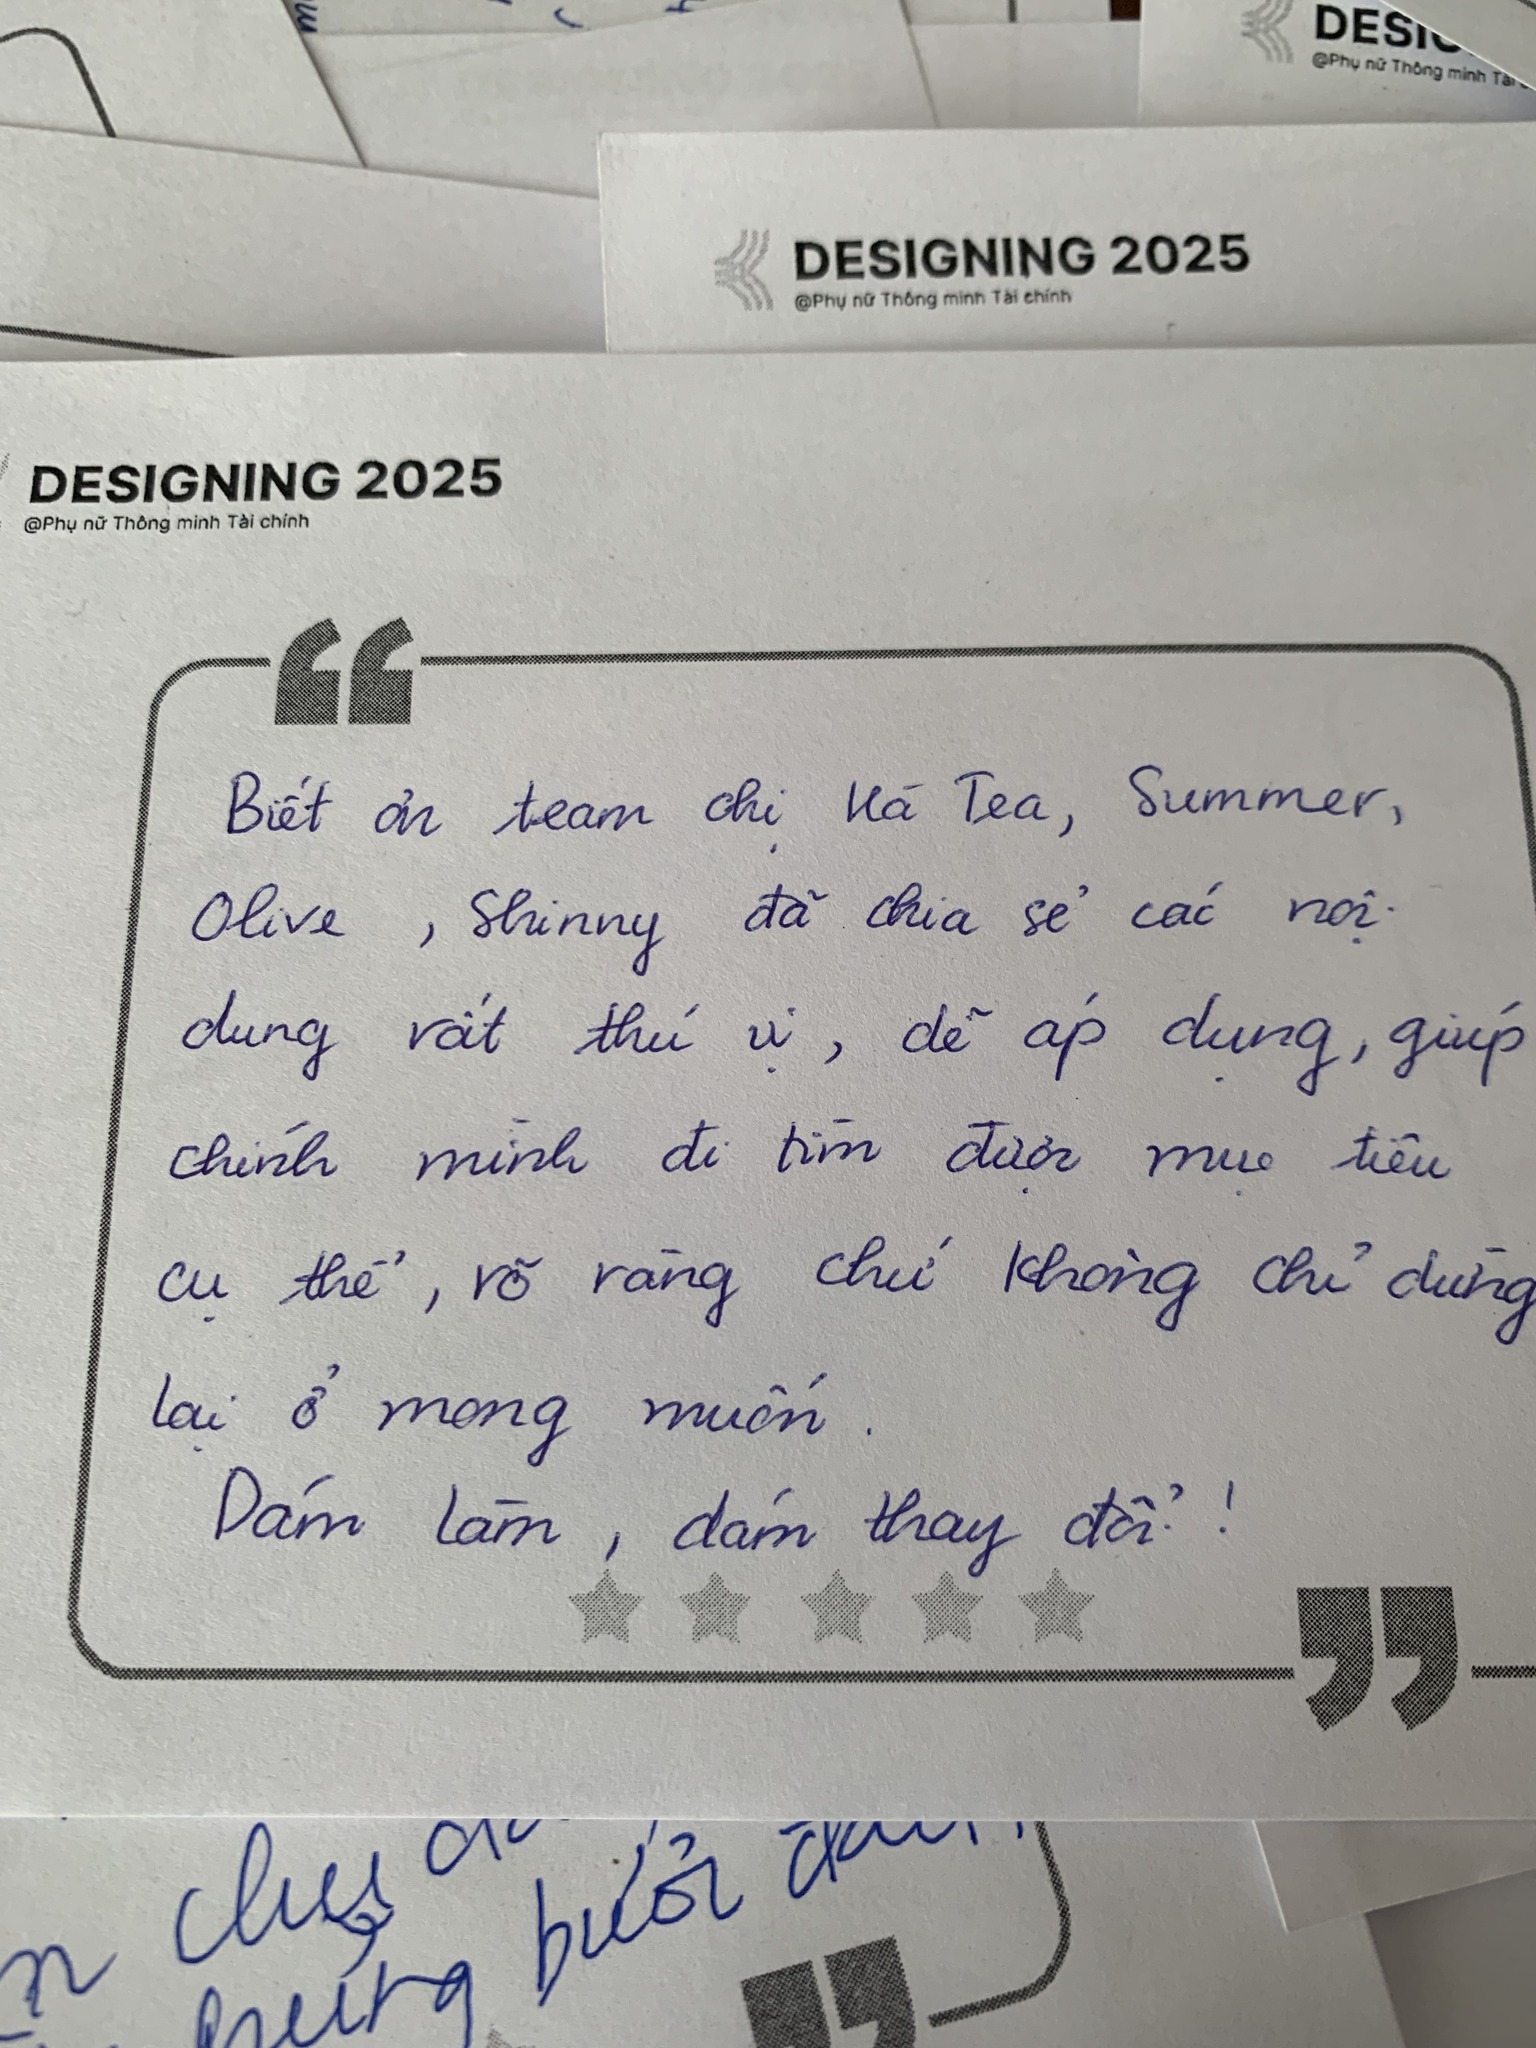 DESIG
@Phụ nữ Thông minh Tài
DESIGNING 2025
@Phụ nữ Thông minh Tài chính
DESIGNING 2025
@Phụ nữ Thông minh Tài chính
“
Biết ơn team chị Hà Tea, Summer,
Olive , Shinny đã chia sẻ các nội
dung rất thú vị, dễ áp dụng, giúp
chính mình đi tìm được mục tiêu
cụ thể, rõ ràng chứ không chỉ dừng
lại ở mong muốn.
Dám làm, dám thay đổi !
”
bưởi
”